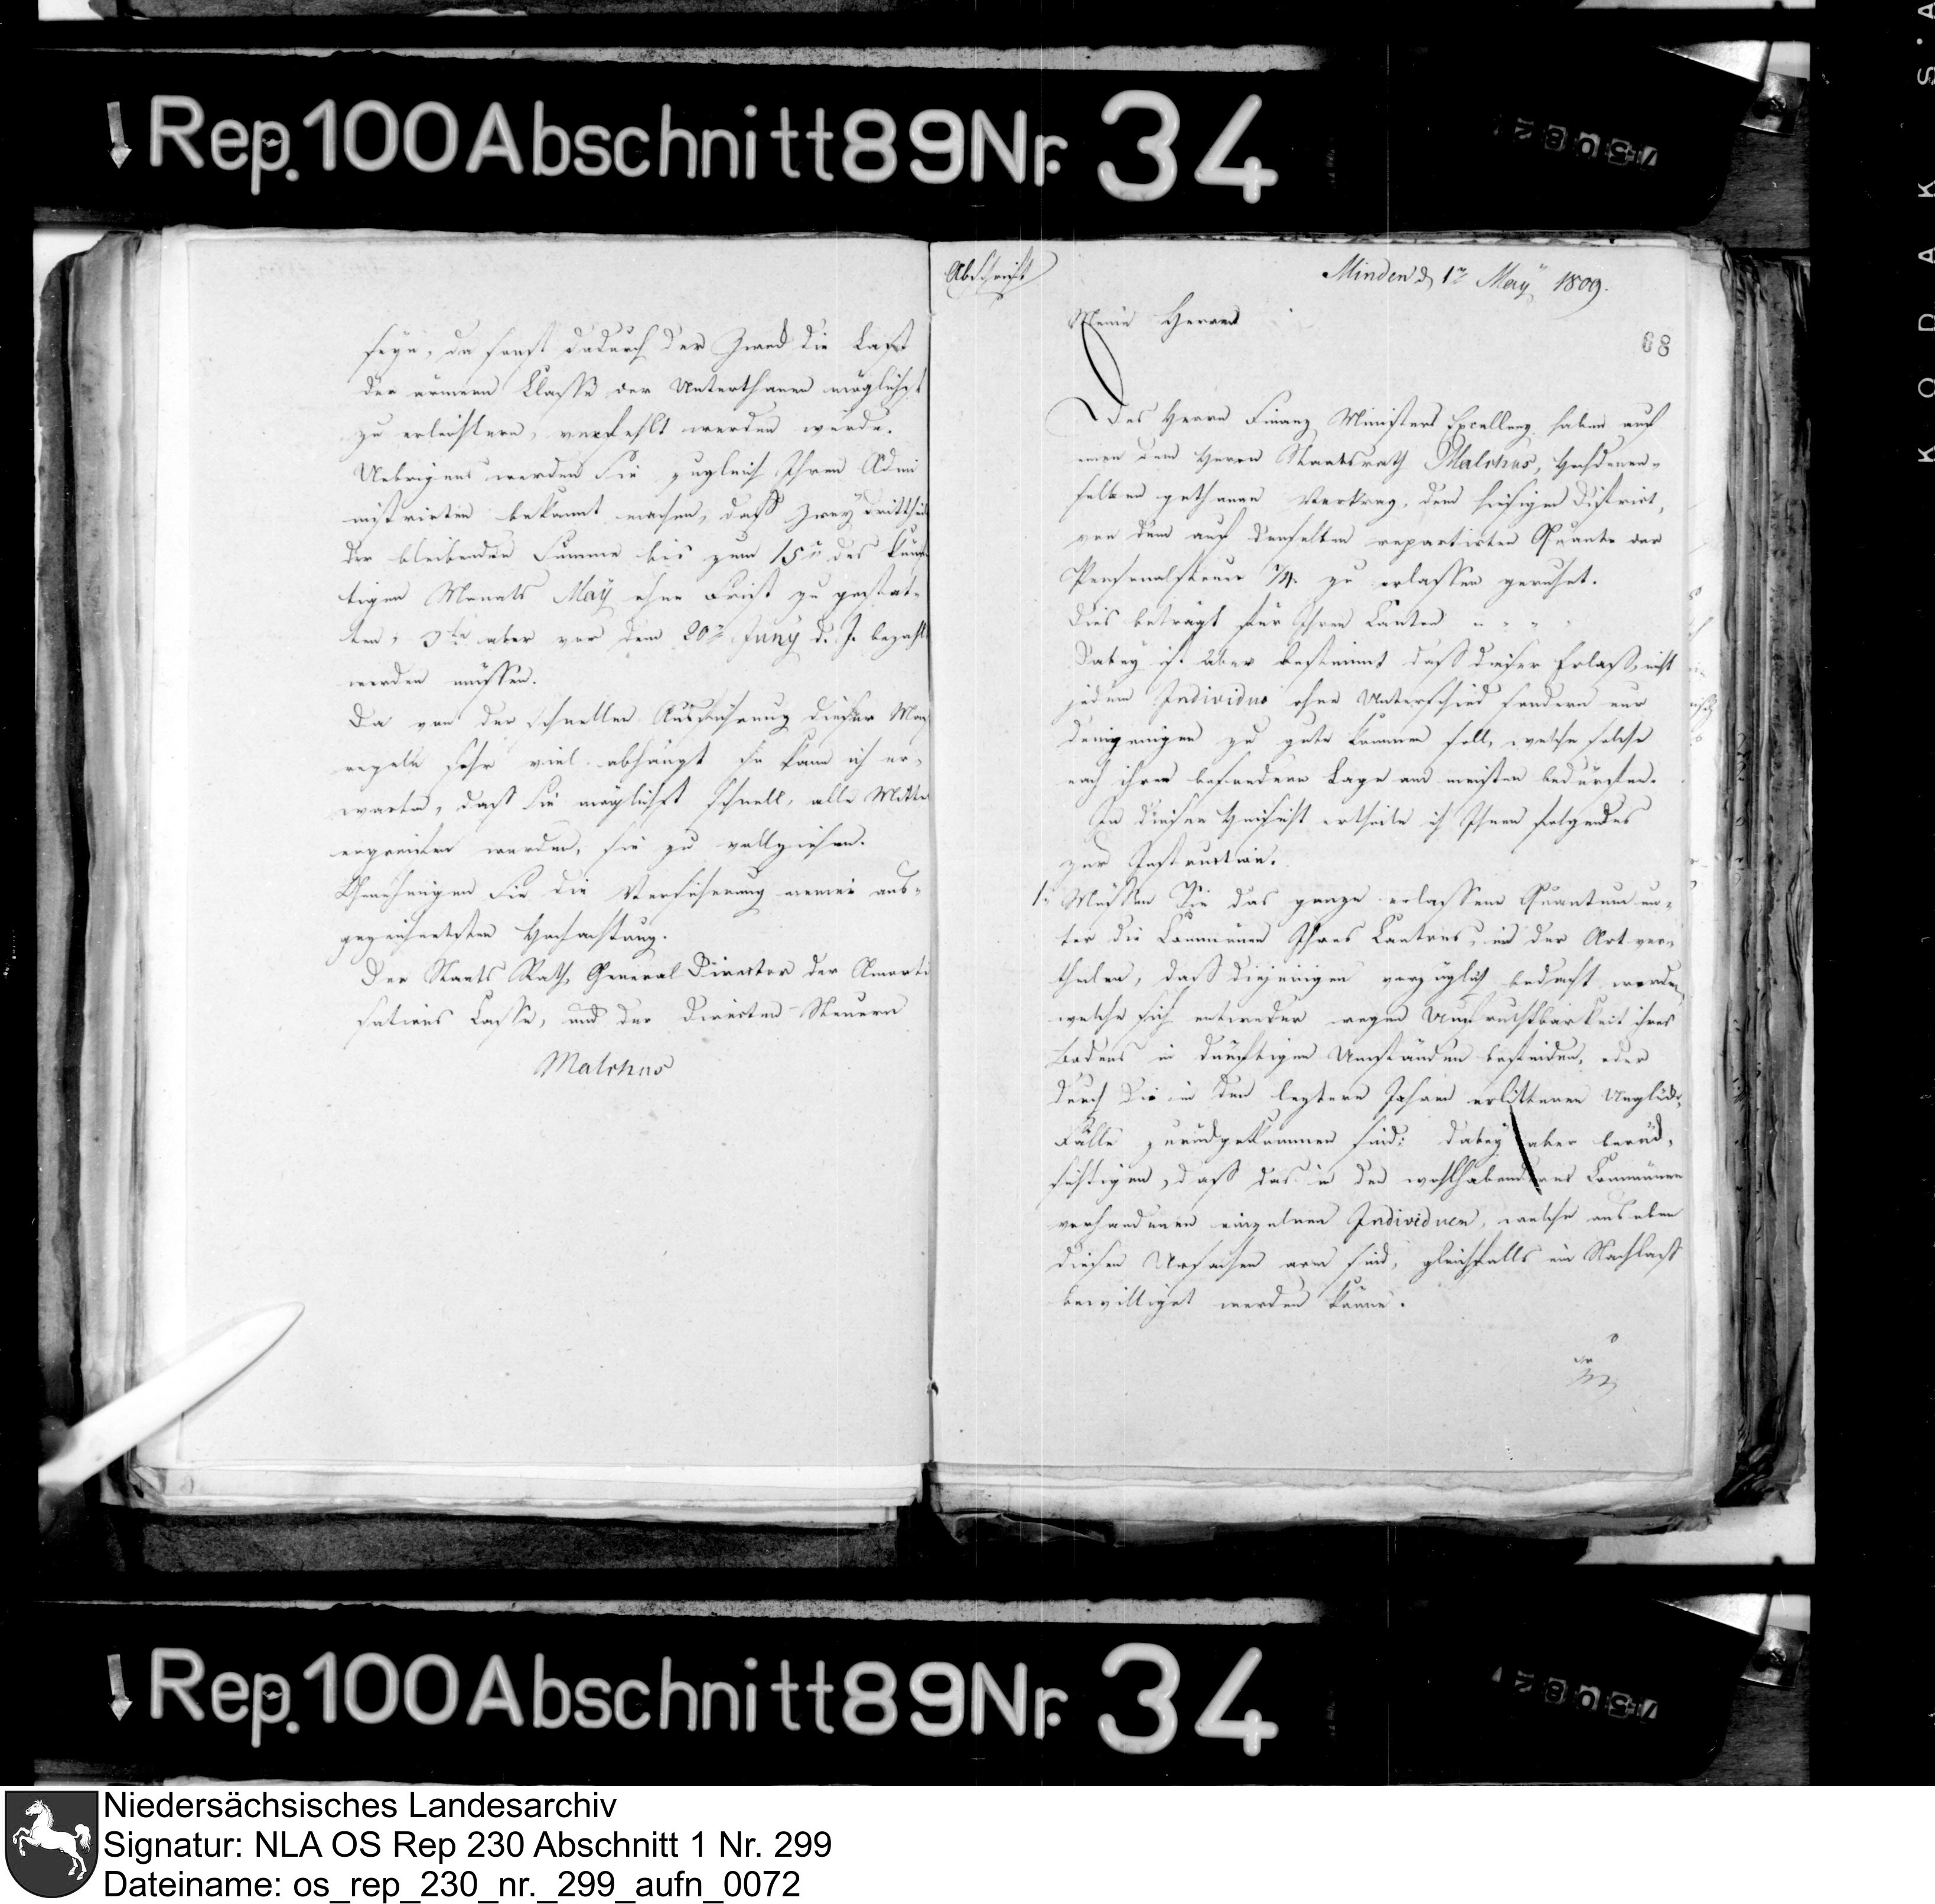 Rep. 100 Abschnitt 89 Nr. 34
seyn, da sonst dadurch der Zweck die Last
der ärmern Classe der Unterthanen möglichst
zu erleichtern, verfehlt werden würde.
Uebrigens werden Sie zugleich Ihren Admi
nistrirten bekannt machen, daß zwey Drittheil
der bleibenden Summe bis zum 15n des künf
tigen Monats May ohne Frist zu gestat-
ten, aber vor dem 20n Juny d. J. bezahlt
werden müssen.
Da von der schnellen Ausführung dieser Maas
regeln sehr viel abhängt so kann ich er-
warten, daß Sie möglichst schnell, alle Mittel
ergreifen werden, sie zu vollziehen.
Genehmigen Sie die Versicherung meiner aus-
gezeichnetsten Hochachtung.
Der Staats Rath, General Director der Amorti
sations Casse, und der directen Steuern
Malchus
Abschrift
Minden d. 1n May 1809.
68
Meine Herren
Des Herrn Finanz Ministers Excellenz haben auf
von dem Herrn Staatsrath Malchus, Hochdenen-
selben gethanen Vortrag, dem hiesigen District,
von dem auf denselben repartirten Quanto der
Personalsteuer 1/4 zu erlassen geruhet.
Dies beträgt für Ihren Canton " " " "
Dabey ist aber bestimmt daß dieser Erlaß, nicht
jedem Individuo ohne Unterschied sondern nur
denjenigen zu gute kommen soll, welche solche
nach ihrer besondern Lage am meisten bedürfen.
In dieser Hinsicht ertheile ich Ihnen folgendes
zur Instruction.
1. Müssen Sie das ganze erlassene Quantum un-
ter die Communen Ihres Cantons, in der Art ver-
theilen, daß diejenigen vorzüglich bedacht werden
welche sich entweder wegen Unfruchtbarkeit ihres
Bodens in dürftigen Umständen befinden, oder
durch die in den leztern Jahren erlittenen Unglücks-
Fälle zurückgekommen sind: dabey aber berück-
sichtigen, daß das in den wohlhabenderen Communen
vorhandenen einzelnen Individuen, welche aus eben
diesen Ursachen arm sind, gleichfalls ein Nachlaß
bewilliget werden könne.
Rep. 100 Abschnitt 89 Nr. 34
KODAK S.A
Niedersächsisches Landesarchiv
Signatur: NLA OS Rep 230 Abschnitt 1 Nr. 299
Dateiname: os_rep_230_nr._299_aufn_0072